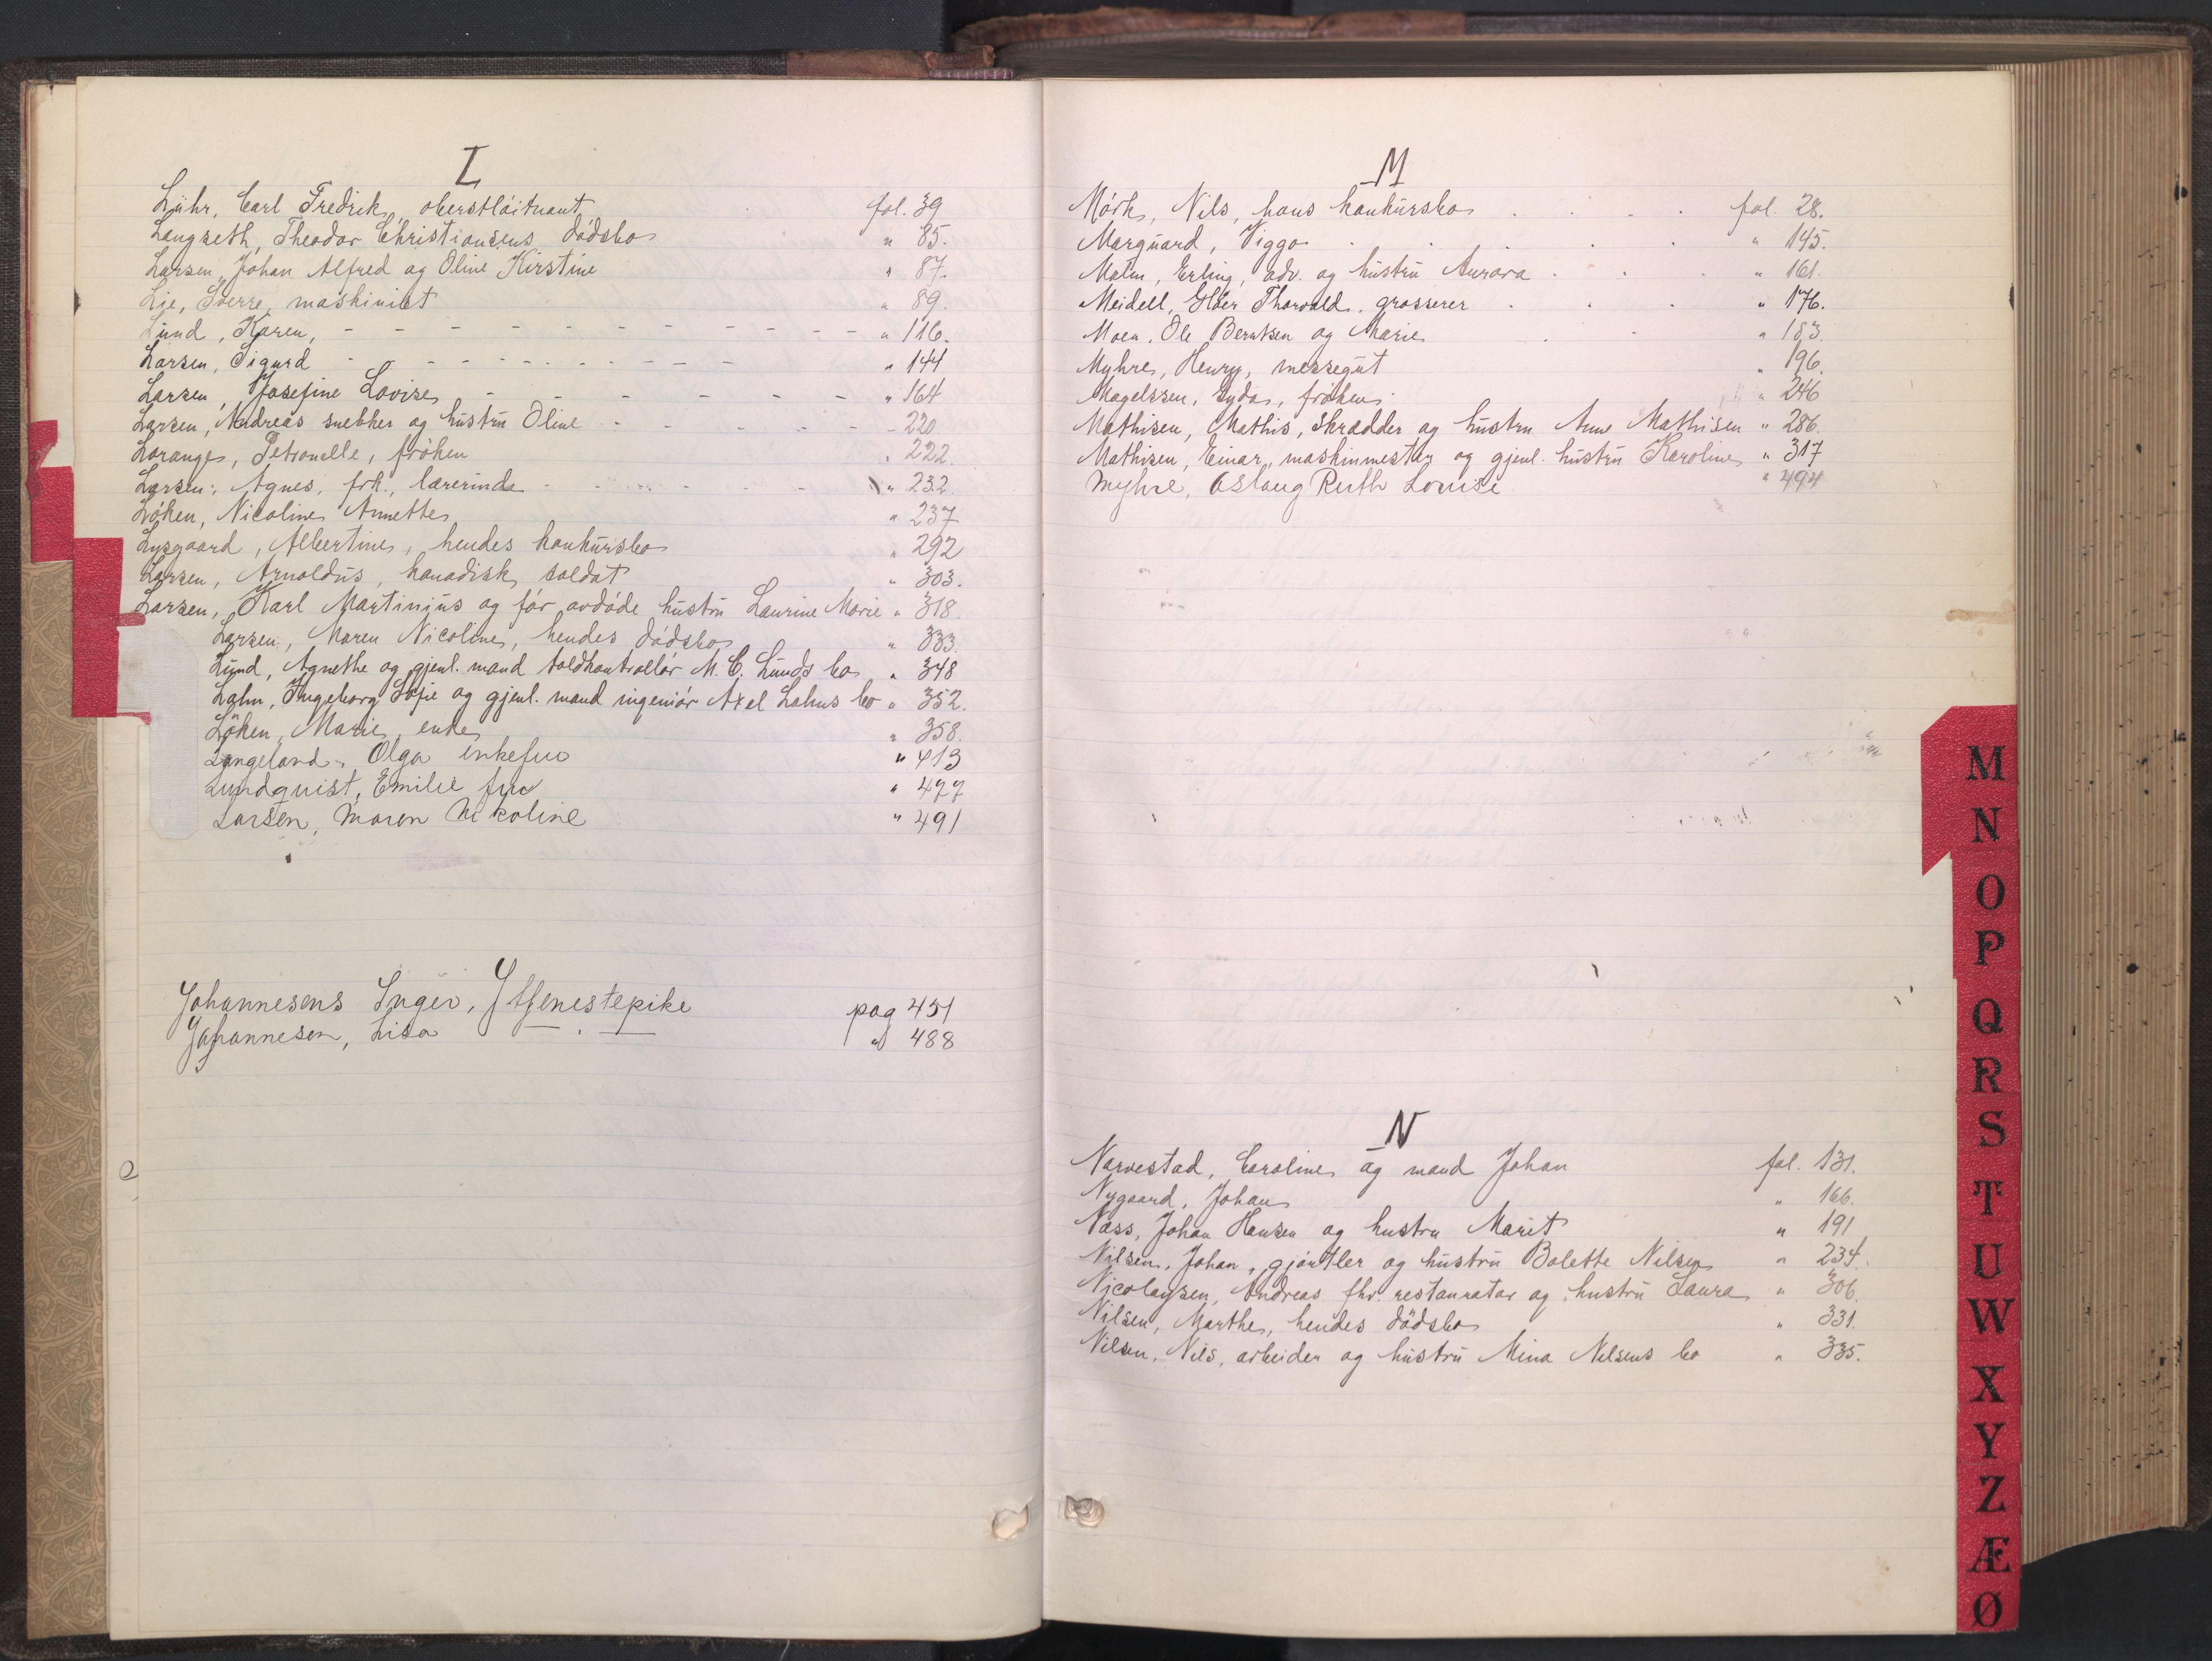 L
Lühr, Carl Fredrik, oberstløitnant fol. 39
Langseth, Theodor Christiansens dødsbo " 85.
Larsen, Johan Alfred og Oline Kirstine " 87.
Lie, Sverre, maskinist " 89.
Lund, Karen, - - - - - - - - - - - " 116.
Larsen, Sigurd - - - - - - - - - - " 144
Larsen, Josefine Lovise - - - - - - " 164
Larsen, Andreas snekker og hustru Oline - - - - - 220.
Lorange, Petronelle, frøken " 222.
Larsen, Agnes, frk., lærerinde - - - - " 232.
Løken, Nicoline Annette " 237
Lysgaard, Albertine, hendes konkursbo " 292
Larsen, Arnoldus, kanadisk soldat " 303.
Larsen, Karl Martinius og før avdøde hustru Laurine Marie " 318.
Larsen, Maren Nicoline, hendes dødsbo " 333.
Lund, Agnethe og gjenl. mand toldkontrollør M. C. Lunds bo " 348
Lahn, Ingeborg Sofie og gjenl. mand ingeniør Axel Lahns bo " 352.
Løken, Marie, enke " 358.
Langeland, Olga enkefru " 413
Lundquist, Emilie fru " 477
Larsen, Maren Nikoline " 491
J
Johannesens Inger, tjenestepike pag 451
Johannesen, Lisa — . — " 488
M
Mörk, Nils, hans konkursbo . . . . fol. 28.
Marguard, Viggo . . . . . " 145.
Malm, Erling, adv. og hustru Aurora . . . " 161.
Meidell, Glöer Thorvald, grosserer . . . " 176.
Moen, Ole Berntsen og Marie . . " 183.
Myhre, Henry, messegut " 196.
Magelssen, Lyda, frøken " 246
Mathisen, Mathis, skrædder og hustru Anne Mathisen " 286.
Mathisen, Einar, maskinmester og gjenl. hustru Karoline " 317
Myhre, Aslaug Ruth Louise " 494
N
Narvestad, Caroline og mand Johan fol. 131.
Nygaard, Johan " 166.
Næss, Johan Hansen og hustru Marit " 191
Nilsen, Johan, gjørtler og hustru Bolette Nilsen " 234.
Nicolaysen, Andreas fhv. restauratør og hustru Laura " 306.
Nilsen, Marthe, hendes dödsbo " 331.
Nilsen, Nils, arbeider og hustru Mina Nilsens bo " 335.
M
N
O
P
Q
R
S
T
U
W
X
Y
Z
Æ
Ø